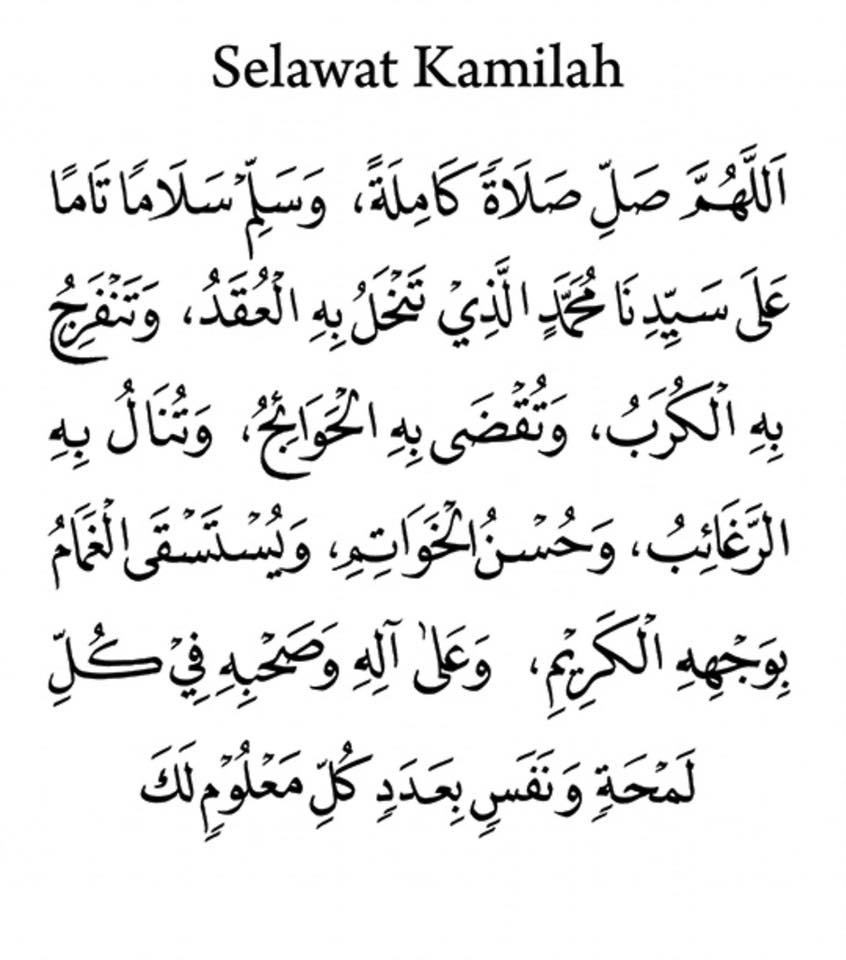 Selawat Kamilah
اَللَّهُمَّ صَلِّ صَلَاةً كَامِلَةً، وَسَلِّمْ سَلَامًا تَامًا
عَلَى سَيِّدِنَا مُحَمَّدٍ الَّذِيْ تَنْحَلُ بِهِ الْعُقَدُ، وَتَنْفَرِجُ
بِهِ الْكُرَبُ، وَتُقْضَى بِهِ الْحَوَائِجُ، وَتُنَالُ بِهِ
الرَّغَائِبُ، وَحُسْنُ الْخَوَاتِمِ، وَيُسْتَسْقَى الْغَمَامُ
بِوَجْهِهِ الْكَرِيْمِ، وَعَلَىٰ آلِهِ وَصَحْبِهِ فِيْ كُلِّ
لَمْحَةٍ وَنَفَسٍ بِعَدَدِ كُلِّ مَعْلُوْمٍ لَكَ